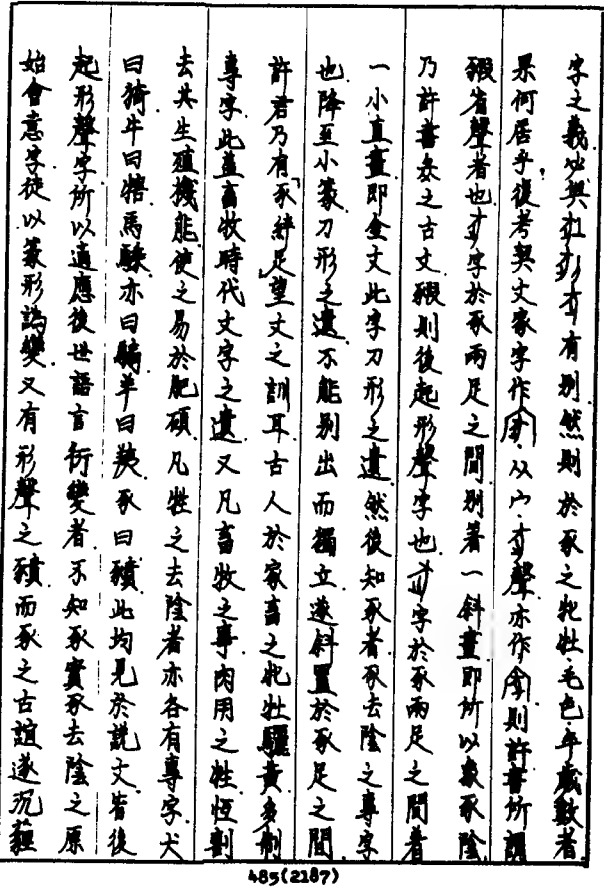 字之義必與 有別然則於豕之牝牡毛色年歲數者
果何居乎復考契文家字作 从宀 聲亦作 則許書所謂
豭省聲者也 字於豕兩足之間別著一斜畫即所以象豕陰
乃許書豕之古文豭則後起形聲字也 字於豕兩足之間著
一小直畫即金文此字刀形之遺然後知豖者豕去陰之專字
也降至小篆刀形之遺不能別出而獨立遂斜置於豕足之間
許君乃有「豕絆足」望文之訓耳古人於家畜之牝牡驪黃多制
專字此蓋畜牧時代文字之遺又凡畜牧之事肉用之牲恆割
去其生殖機能使之易於肥碩凡牲之去陰者亦各有專字犬
曰猗牛曰犗馬曰騬亦曰騸羊曰羠豕曰豶此均見於說文皆後
起形聲字所以適應後世語言衍變者不知豖實豕去陰之原
始會意字徒以篆形譌變又有形聲之豶而豖之古誼遂沉薶
485(2187)